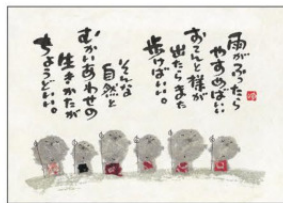 雨がふったら
やすめばいい
おてんと様が
出たらまた
歩けばいい。
そんな
自然と
むかいあわせの
生きかたが
ちょうどいい。